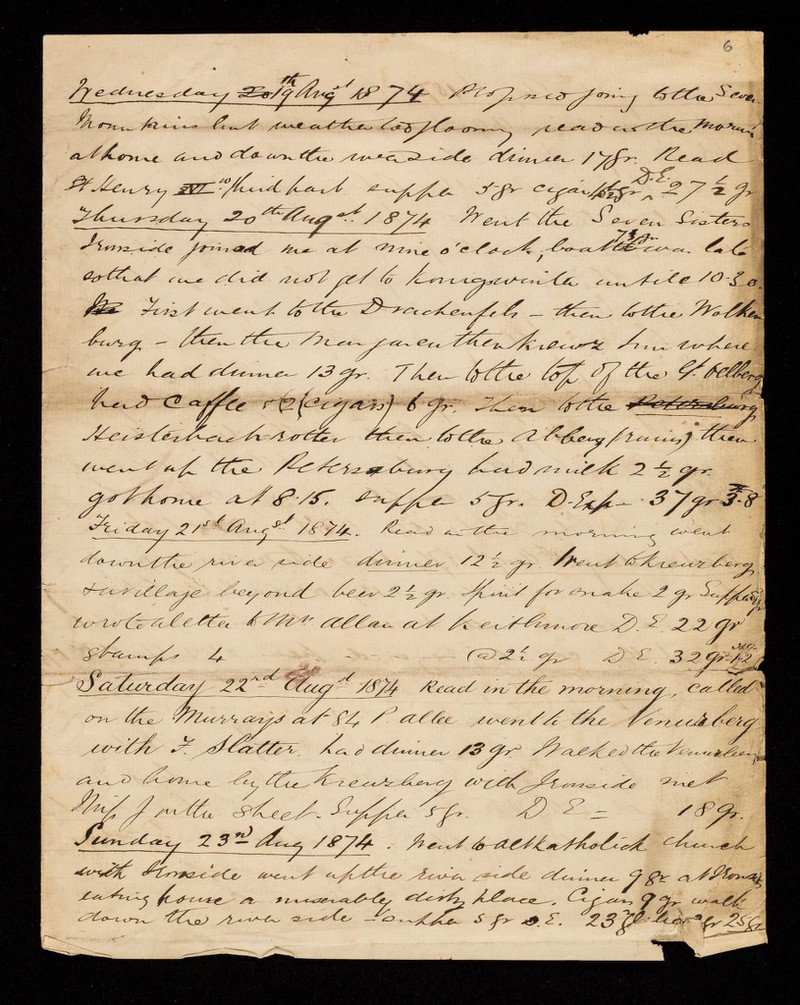 6
Wednesday 19th Augst 1874 Proposed going to the Seven
Mountains but weather too gloomy read in the mornin
at home and down the river side dinner 17 gr. Read
Henry VI third part supper 5 gr cigars D.E. 27½ gr
Thursday 20th Augst 1874 Went the Seven Sisters
Ironside joined me at nine o'clock, boat was late
so that we did not get to Konigswinter untill 10.30.
First went to the Drachenfels – then to the Wolken
burg – then the Margareuthenkreuz Inn where
we had dinner 13 gr. Then to the top of the Gt Oelberg
had Caffee & 2 (cigars) 6 gr. Then to the Petersburg
Heisterbachrotter then to the Abbey (ruins) then
went up the Petersburg had milk 2½ gr.
got home at 8.15. supper 5 gr. D. Exp – 37 gr 3.8
Friday 21st Augst 1874. Read in the morning went
down the river side dinner 12½ gr Went to Kreuzberg
& village beyond beer 2½ gr. Spirit for snake 2 gr Supper 5 gr
wrote a letter to Mrs Allan at Keithmore D. E. 22 gr
stamps 4 @ 2½ gr D E. 32 gr
Saturday 22nd Augst 1874 Read in the morning, called
on the Murrays at 84 P. allee went to the Venusberg
with F. Slatter had dinner 13 gr. Walked the Venusberg
and home by the Kreuzberg with Ironside met
Miss J on the street. Supper 5 gr. D E = 18 gr.
Sunday 23rd Aug 1874. Went to altkatholick church
with Ironside went up the river side dinner 9 gr at Ironsides
eating house a miserably dirty place. Cigars 9 gr walk
down the river side supper 5 gr D.E. 23 gr 25 gr